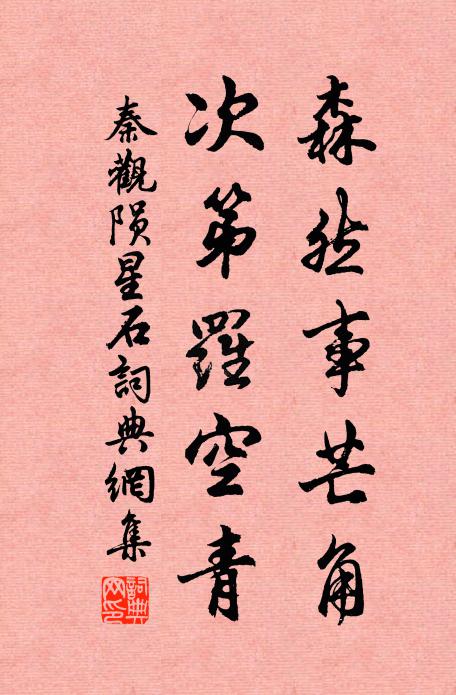 森然事芒角
次第羅空青
秦觀隕星石詞典網集
詞典
网印